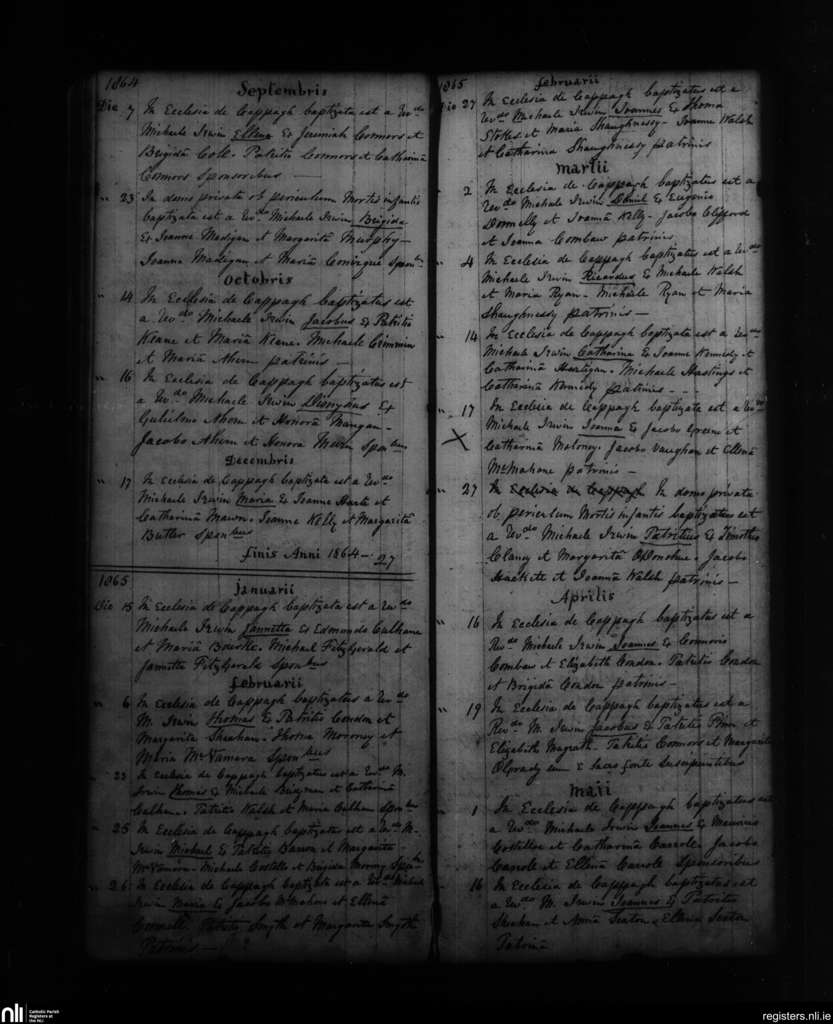 1864
Septembris
Die 7 In Ecclesia de Cappagh baptizata est a Revdo
Michaele Irwin Ellena Ex Jeremiah Connors et
Brigidâ Coll. Patritio Connors et Catharinâ
Connors Sponsoribus
" 23 In domo privata ob periculum Mortis infantis
baptizata est a Revdo Michaele Irwin Brigida
Ex Joanne Madigan et Margaritâ Murphy
Joanne Madigan et Mariâ Sponbus
Octobris
" 14 In Ecclesia de Cappagh baptizatus est
a Revdo Michaele Irwin Jacobus Ex Patritio
Keane et Mariâ Keane. Michaele Crimmin
et Mariâ Ahern patrinis
" 16 In Ecclesia de Cappagh baptizatus est
a Revdo Michaele Irwin Dionysius Ex
Gulielmo Ahern et Honorâ Mangan
Jacobo Ahern et Honora Sponbus
Decembris
" 17 In Ecclesia de Cappagh baptizata est a Revdo
Michaele Irwin Maria Ex Joanne Harte et
Catharinâ Joanne Kelly et Margaritâ
Butler Sponbus
Finis Anni 1864 - 27
1865
Januarii
Die 15 In Ecclesia de Cappagh baptizata est a Revdo
Michaele Irwin Jannetta Ex Edmondo Culhane
et Mariâ Bourke. Michael FitzGerald et
Jannetta FitzGerald Sponbus
Februarii
" 6 In Ecclesia de Cappagh baptizatus a Revdo
M. Irwin Thomas Ex Patritio Condon et
Margarita Sheehan. Thoma Moroney et
Maria McNamara Sponbus
" 23 In Ecclesia de Cappagh baptizatus est a Revdo M.
Irwin Thomas Ex Michaele Bridgman et Catharinâ
Culhan. Patritio Walsh et Maria Culhan Sponbus
" 25 In Ecclesia de Cappagh baptizatus est a Revdo M.
Irwin Michael Ex Patritio et Margarita
McNamara. Michaele Costello et Brigida Sponbus
" 26 In Ecclesia de Cappagh baptizata est a Revdo Michaele
Irwin Maria Ex Jacobo McMahon et Ellenâ
Connell. Patritio Smyth et Margarita Smyth
Patrinis
1865
Februarii
Die 27 In Ecclesia de Cappagh baptizatus est a
Revdo Michaele Irwin Joannes Ex Thoma
Stokes et Maria Shaughnessy. Joanne Walsh
et Catharina Shaughnessy patrinis
Martii
" 2 In Ecclesia de Cappagh baptizatus est a
Revdo Michaele Irwin Daniel Ex Eugenio
Donnelly et Joannâ Kelly. Jacobo Clifford
et Joanna Combaw patrinis
" 4 In Ecclesia de Cappagh baptizatus est a Revdo
Michaele Irwin Ricardus Ex Michaele Walsh
et Maria Ryan. Michaele Ryan et Maria
Shaughnessy patrinis
" 14 In Ecclesia de Cappagh baptizata est a Revdo
Michaele Irwin Catharina Ex Joanne Kennedy et
Catharinâ Hartigan. Michaele Hastings et
Catharinâ Kennedy patrinis
" 17 In Ecclesia de Cappagh baptizata est a Revdo
X Michaele Irwin Joanna Ex Jacobo Green et
Catharinâ Moloney. Jacobo Vaughan et Ellenâ
McMahane patrinis
" 27 In Ecclesia de Cappagh In domo privata
ob periculum Mortis infantis baptizatus est
a Revdo Michaele Irwin Patritius Ex Timotheo
Clancy et Margaritâ ODonohue. Jacobo
Hackett et Joannâ Walsh patrinis
Aprilis
" 16 In Ecclesia de Cappagh baptizatus est a
Revdo Michaele Irwin Joannes Ex Connoris
Combaw et Elizabeth Condon. Patritio Condon
et Brigidâ Condon patrinis
" 19 In Ecclesia de Cappagh baptizatus est a
Revdo M. Irwin Jacobus Ex Patritio et
Elizabeth Magrath. Patritio Connors et Margarita
OGrady eum e sacro fonte Suscipientibus
Maii
" 1 In Ecclesia de Cappagh baptizatus est
a Revdo Michaele Irwin Joannes Ex Mauricio
Costelloe et Catharinâ Carrole. Jacobo
Carrole et Ellenâ Carrole Sponsoribus
" 16 In Ecclesia de Cappagh baptizatus est
a Revdo M. Irwin Joannes Ex Patritio
Sheehan et Annâ Sexton. Ellena Sexton
Patrinâ
nli Catholic Parish
Registers at
the NLI
registers.nli.ie